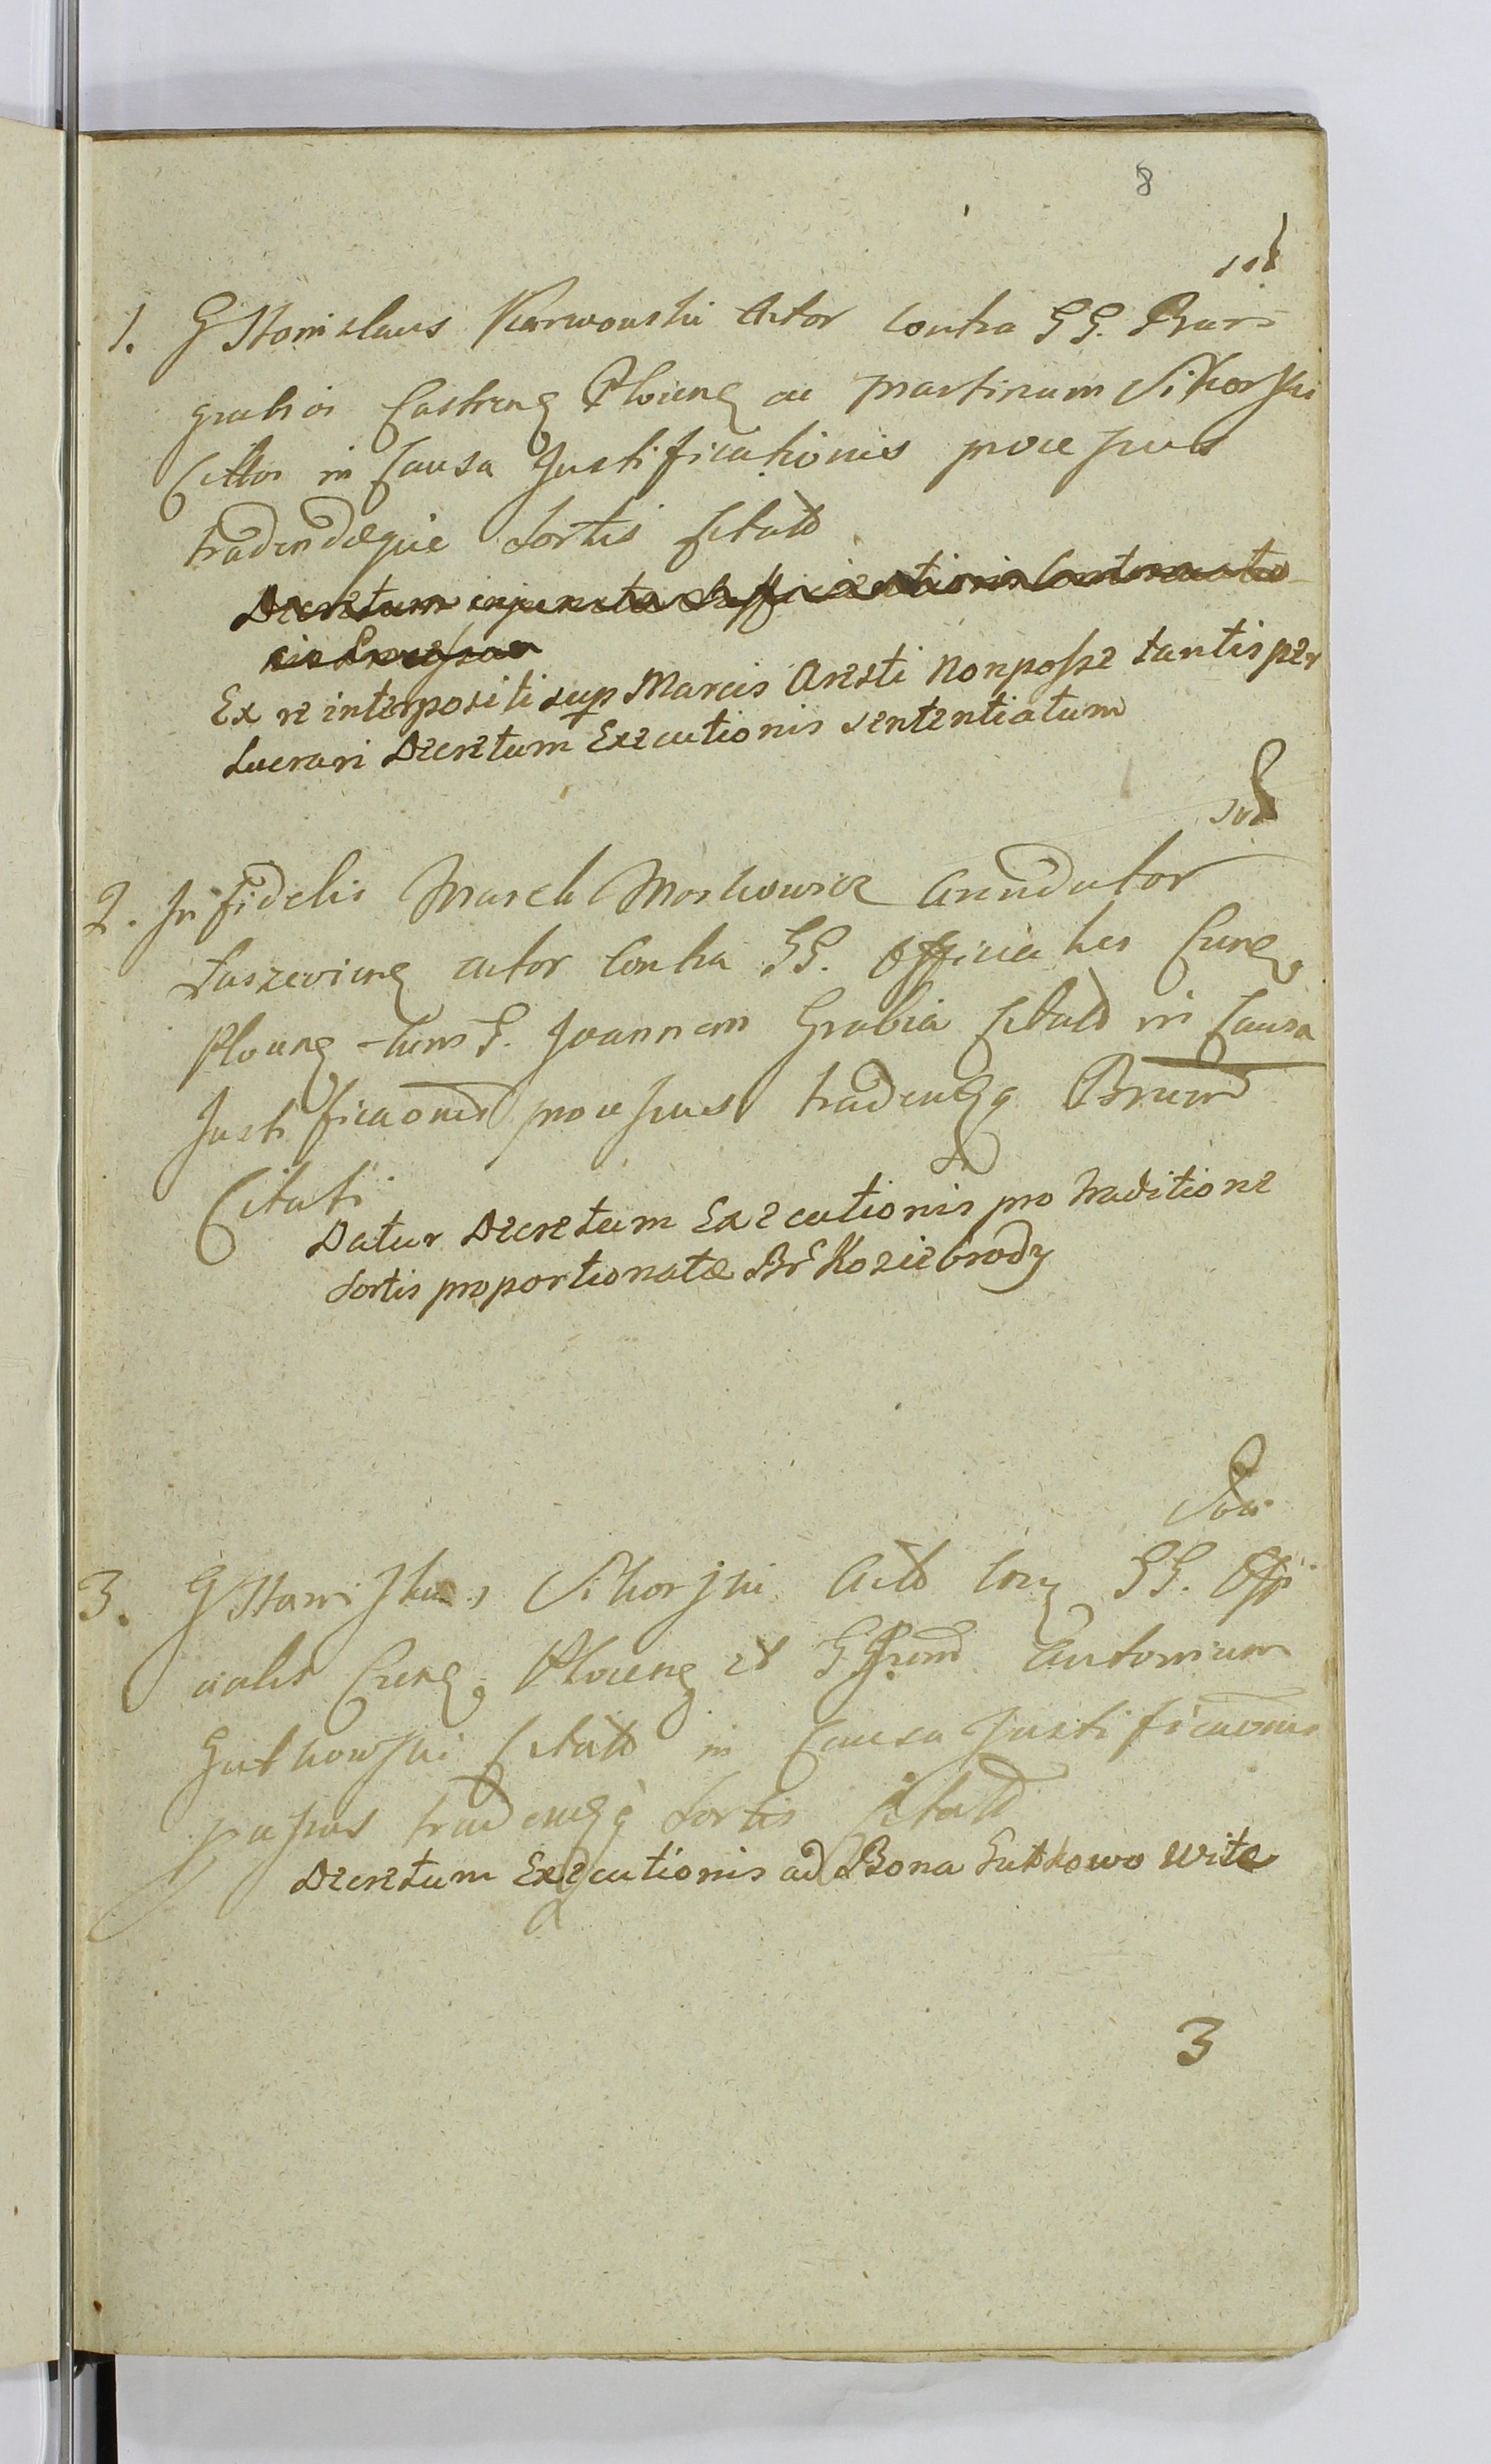 8
1. G Stanislaus Karwowski Actor Contra GG. Burg
grabios Castreng Ploceng ac Martinum Sikorski
Cittos in Causa Justificationis processus
tradendæque Sortis Citatt
Decretum injuncta
Ex re interpositi sup Marcis Aresti Non posse tantisper
Lucrari Decretum Executionis sententiatum
2. Infidelis Marek Moskowicz Arendator
Staszeviceng Actor Contra GG. Officiales Cureng
Ploceng tum G. Joannem Grabia Citatt in Causa
Justificaonis processus tradendqq Bnrum
Citati
Datur Decretum Executionis pro traditione
Sortis proportionatæ Br Koziebrody
3. G Stanislaus Sikorski Actt Con GG. Offi
ciales Cureng Ploceng et Gsum Antonium
Gutkowski Citatt in Causa Justificaonis
pcessus tradendqq Sortis Citatt
Decretum Executionis ad Bona Gutkowo Wite
3